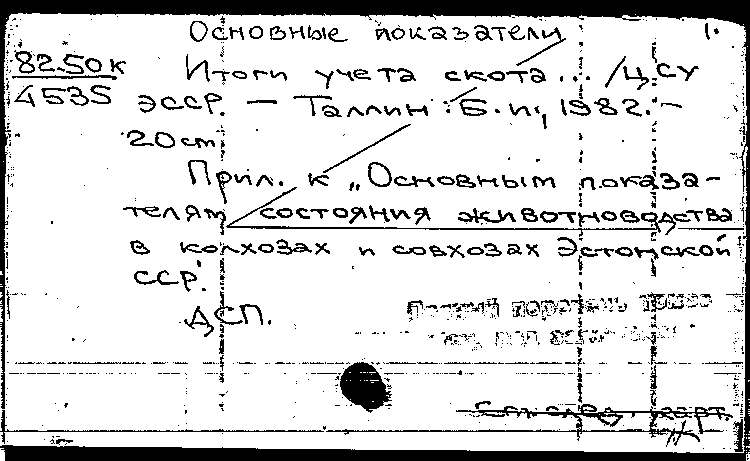 Основные показатели 1.
82.50к Итоги учета скота... /ЦСУ
4535 ЭССР. — Таллин : Б.и., 1982. —
20 см.
Прил. к „Основным показа-
телям состояния животноводства
в колхозах и совхозах Эстонской
ССР.
ДСП.
См. след. карт.